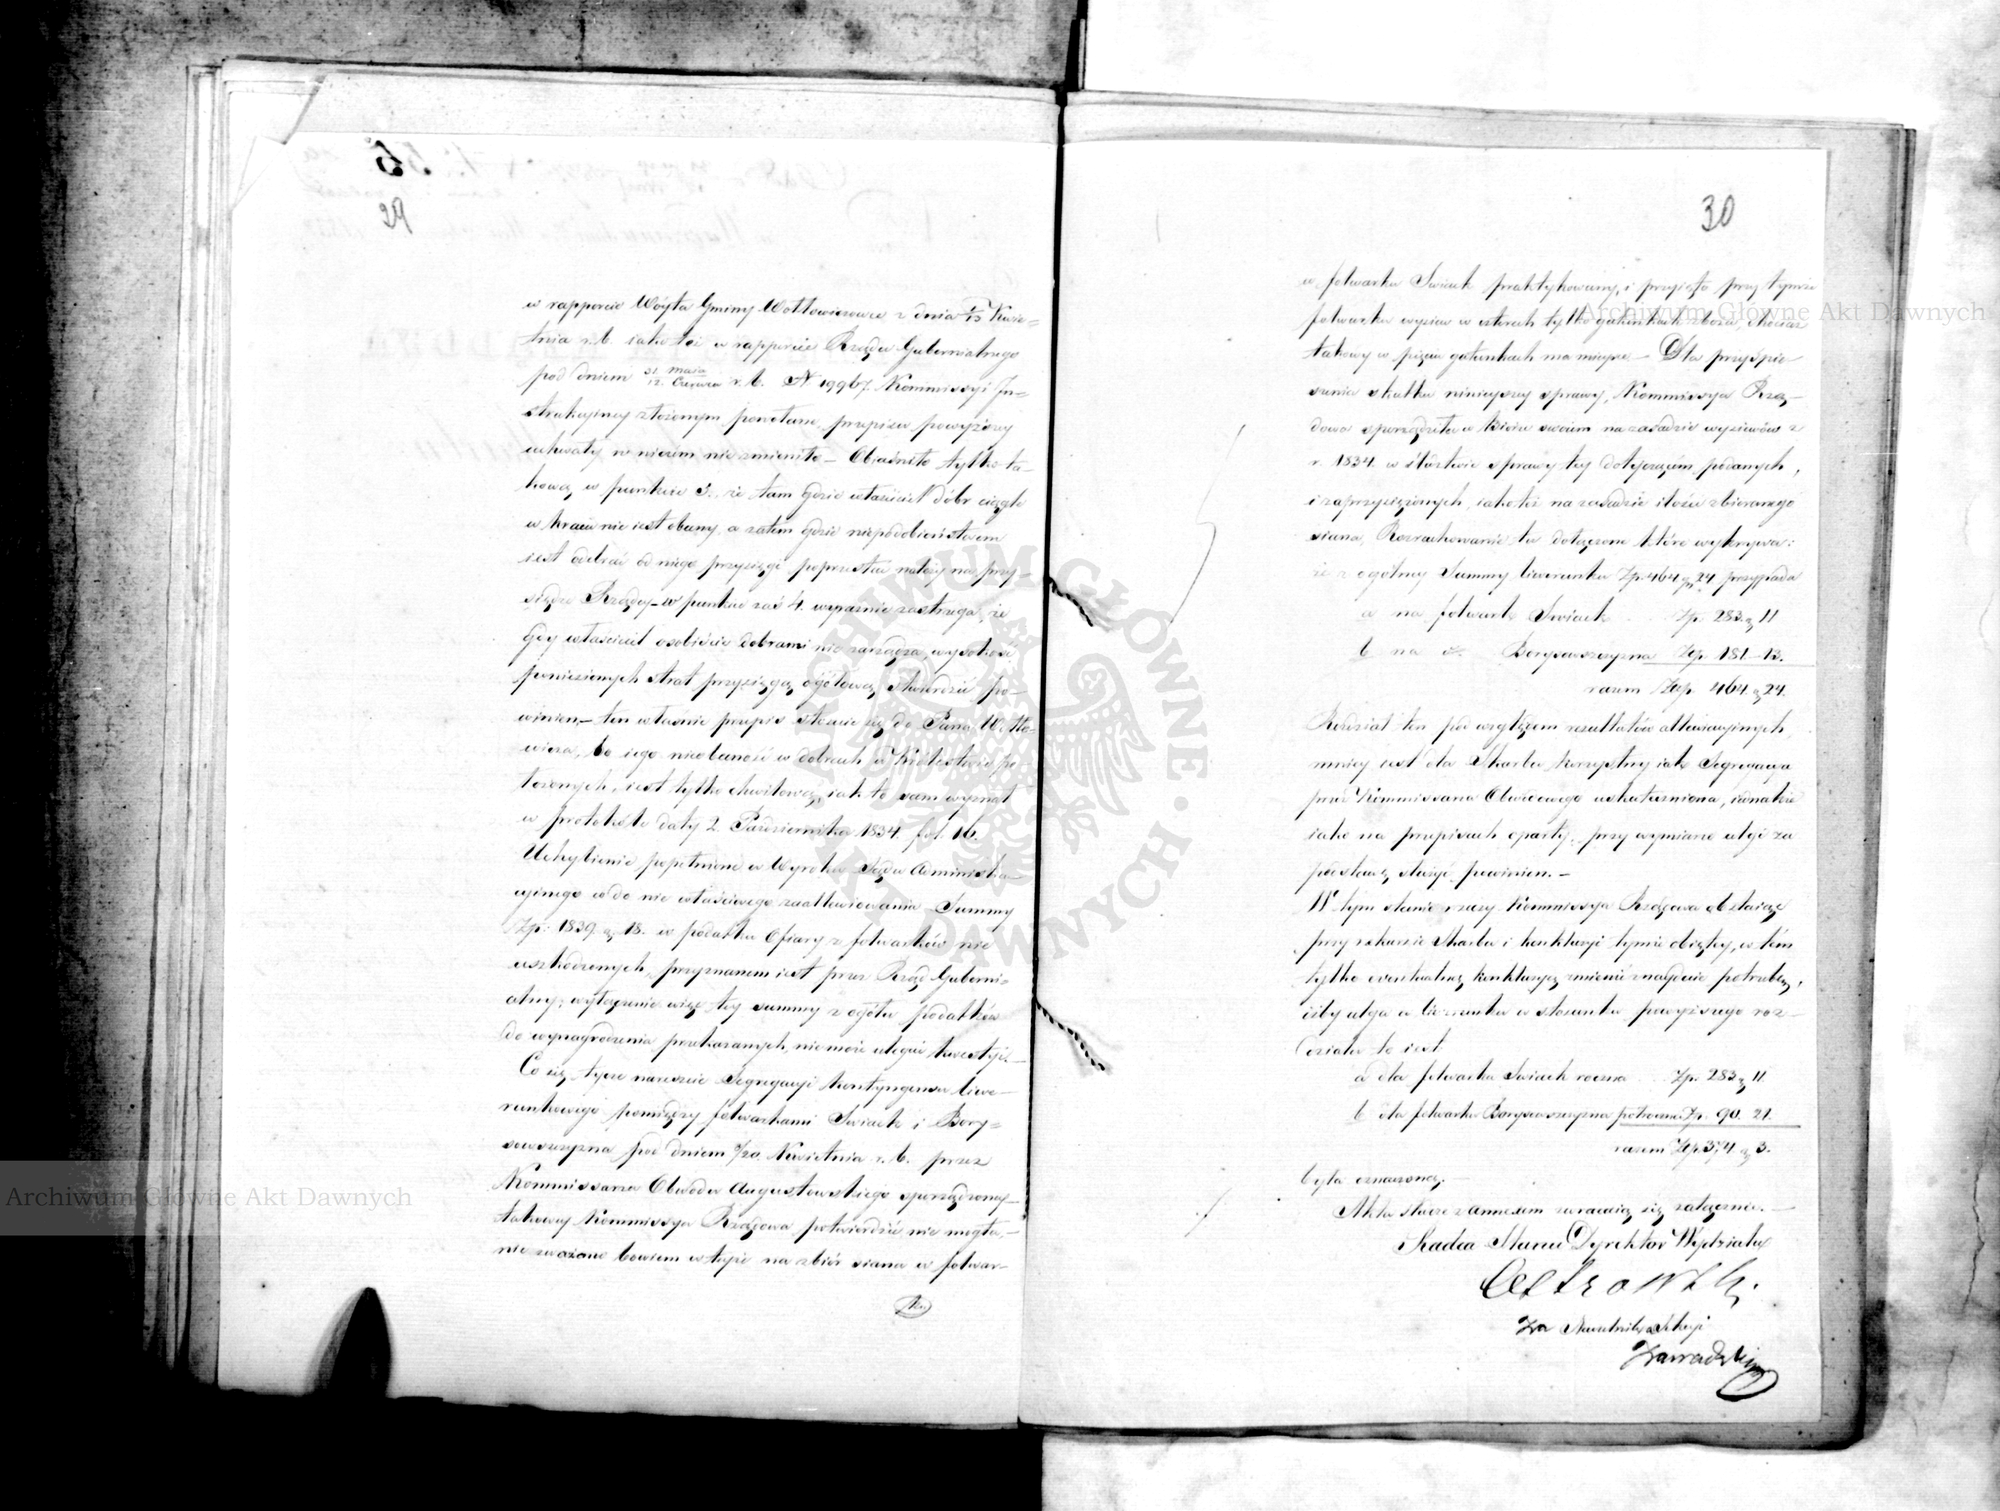 29
w rapporcie Wóyta Gminy Wołłowiczowce z dnia 1/13 Kwie=
tnia r. b. jako też w rapporcie Rządu Gubernialnego
pod dniem 31. Maja / 12. Czerwca r. b. N 19967. Kommissyi In=
strukcyjney złożonym powołane, przepisu powyższey
uchwały w niczem nie zmieniło — Objaśniło tylko ta=
kową w punkcie 3., że tam gdzie właściciel dóbr ciągle
w kraju nie jest obecny, a zatem gdzie niepodobieństwem
jest odebrać od niego przysięgi poprzestać należy na przy=
siędze Rządcy — w punkcie zaś 4. wyraźnie zastrzega, że
gdy właściciel osobiście dobrami nie zarządza, wysokość
poniesionych strat przysięgą ogólową stwierdzić po=
winien, — ten właśnie przepis stosuie się do Pana Wołło=
wicza, bo jego nieobecność w dobrach w Królestwie po=
łożonych, jest tylko chwilową, jak to sam wyznał
w protokóle daty 2. Października 1834. fol. 16.
Uchybienie popełnione w Wyroku Sądu Administra=
cyjnego co do nie właściwego zaallewiowania Summy
Złp: 1839. g. 18. w podatku Ofiary z folwarków nie
uszkodzonych, przyznanem jest przez Rząd Guberni=
alny; wyłączenie więc tey summy z ogółu podatków
do wynagrodzenia przekazanych, nie może ulegać kwestyi. —
Co się tycze nareszcie Segregacyi kontyngensu liwe=
runkowego pomiędzy folwarkami Swiack i Bory=
sowszczyzna pod dniem 8/20. Kwietnia r. b. przez
Kommissarza Obwodu Augustowskiego sporządzoney —
takowey Kommissya Rządowa potwierdzić nie mogła, —
nie zważano bowiem w tejże na zbiór siana w folwar=
ku
30
w folwarku Swiack praktykowany, i przyjęto przy tymże
folwarku wysiew w czterech tylko gatunkach zboża, chociaż
takowy w pięciu gatunkach ma miejsce — Dla przyspie=
szenia skutku niniejszey sprawy, Kommissya Rzą=
dowa sporządziła w Biórze swoiem na zasadzie wysiewów z
r. 1834. w śledztwie sprawy tey dotyczącém podanych,
i zaprzysiężonych, jako też na zasadzie ilości zbieranego
siana, Rozrachowanie tu dołączone które wykrywa:
że z ogólney Summy liwerunku Złp. 464 g. 24 przypada
a na folwark Swiack . . . Złp. 283. g. 11
b na d. Borysowszczyzna Złp. 181 — 13.
razem Złp. 464. g. 24.
Rozdział ten pod względem rezultatów allewiacyinych,
mniey jest dla Skarbu korzystny jak Segregacya
przez Kommissarza Obwodowego uskuteczniona, jednakże
jako na przepisach oparty, przy wymiarze ulgi za
podstawę służyć powinien. —
W tym stanie rzeczy Kommissya Rządowa obstając
przy rekursie Skarbu i konkluzyi tymże objętey, w tém
tylko ewentualną konkluzyą zmienić znayduie potrzebę,
iżby ulga w liwerunku w stosunku powyższego roz=
działu to jest
a dla folwarku Swiack roczna . . Złp. 283 g. 11.
b dla folwarku Borysowszczyzna półroczna Złp. 90. 21.
razem Złp. 374 g. 3.
była oznaczoną. —
Akta stósze z annexem zwracaią się załącznie. —
Radca Stanu Dyrektor Wydziału
Za Naczelnika Sekcyi
Zawadzki
ARCHIWUM GŁÓWNE AKT DAWNYCH
Archiwum Główne Akt Dawnych
Archiwum Główne Akt Dawnych